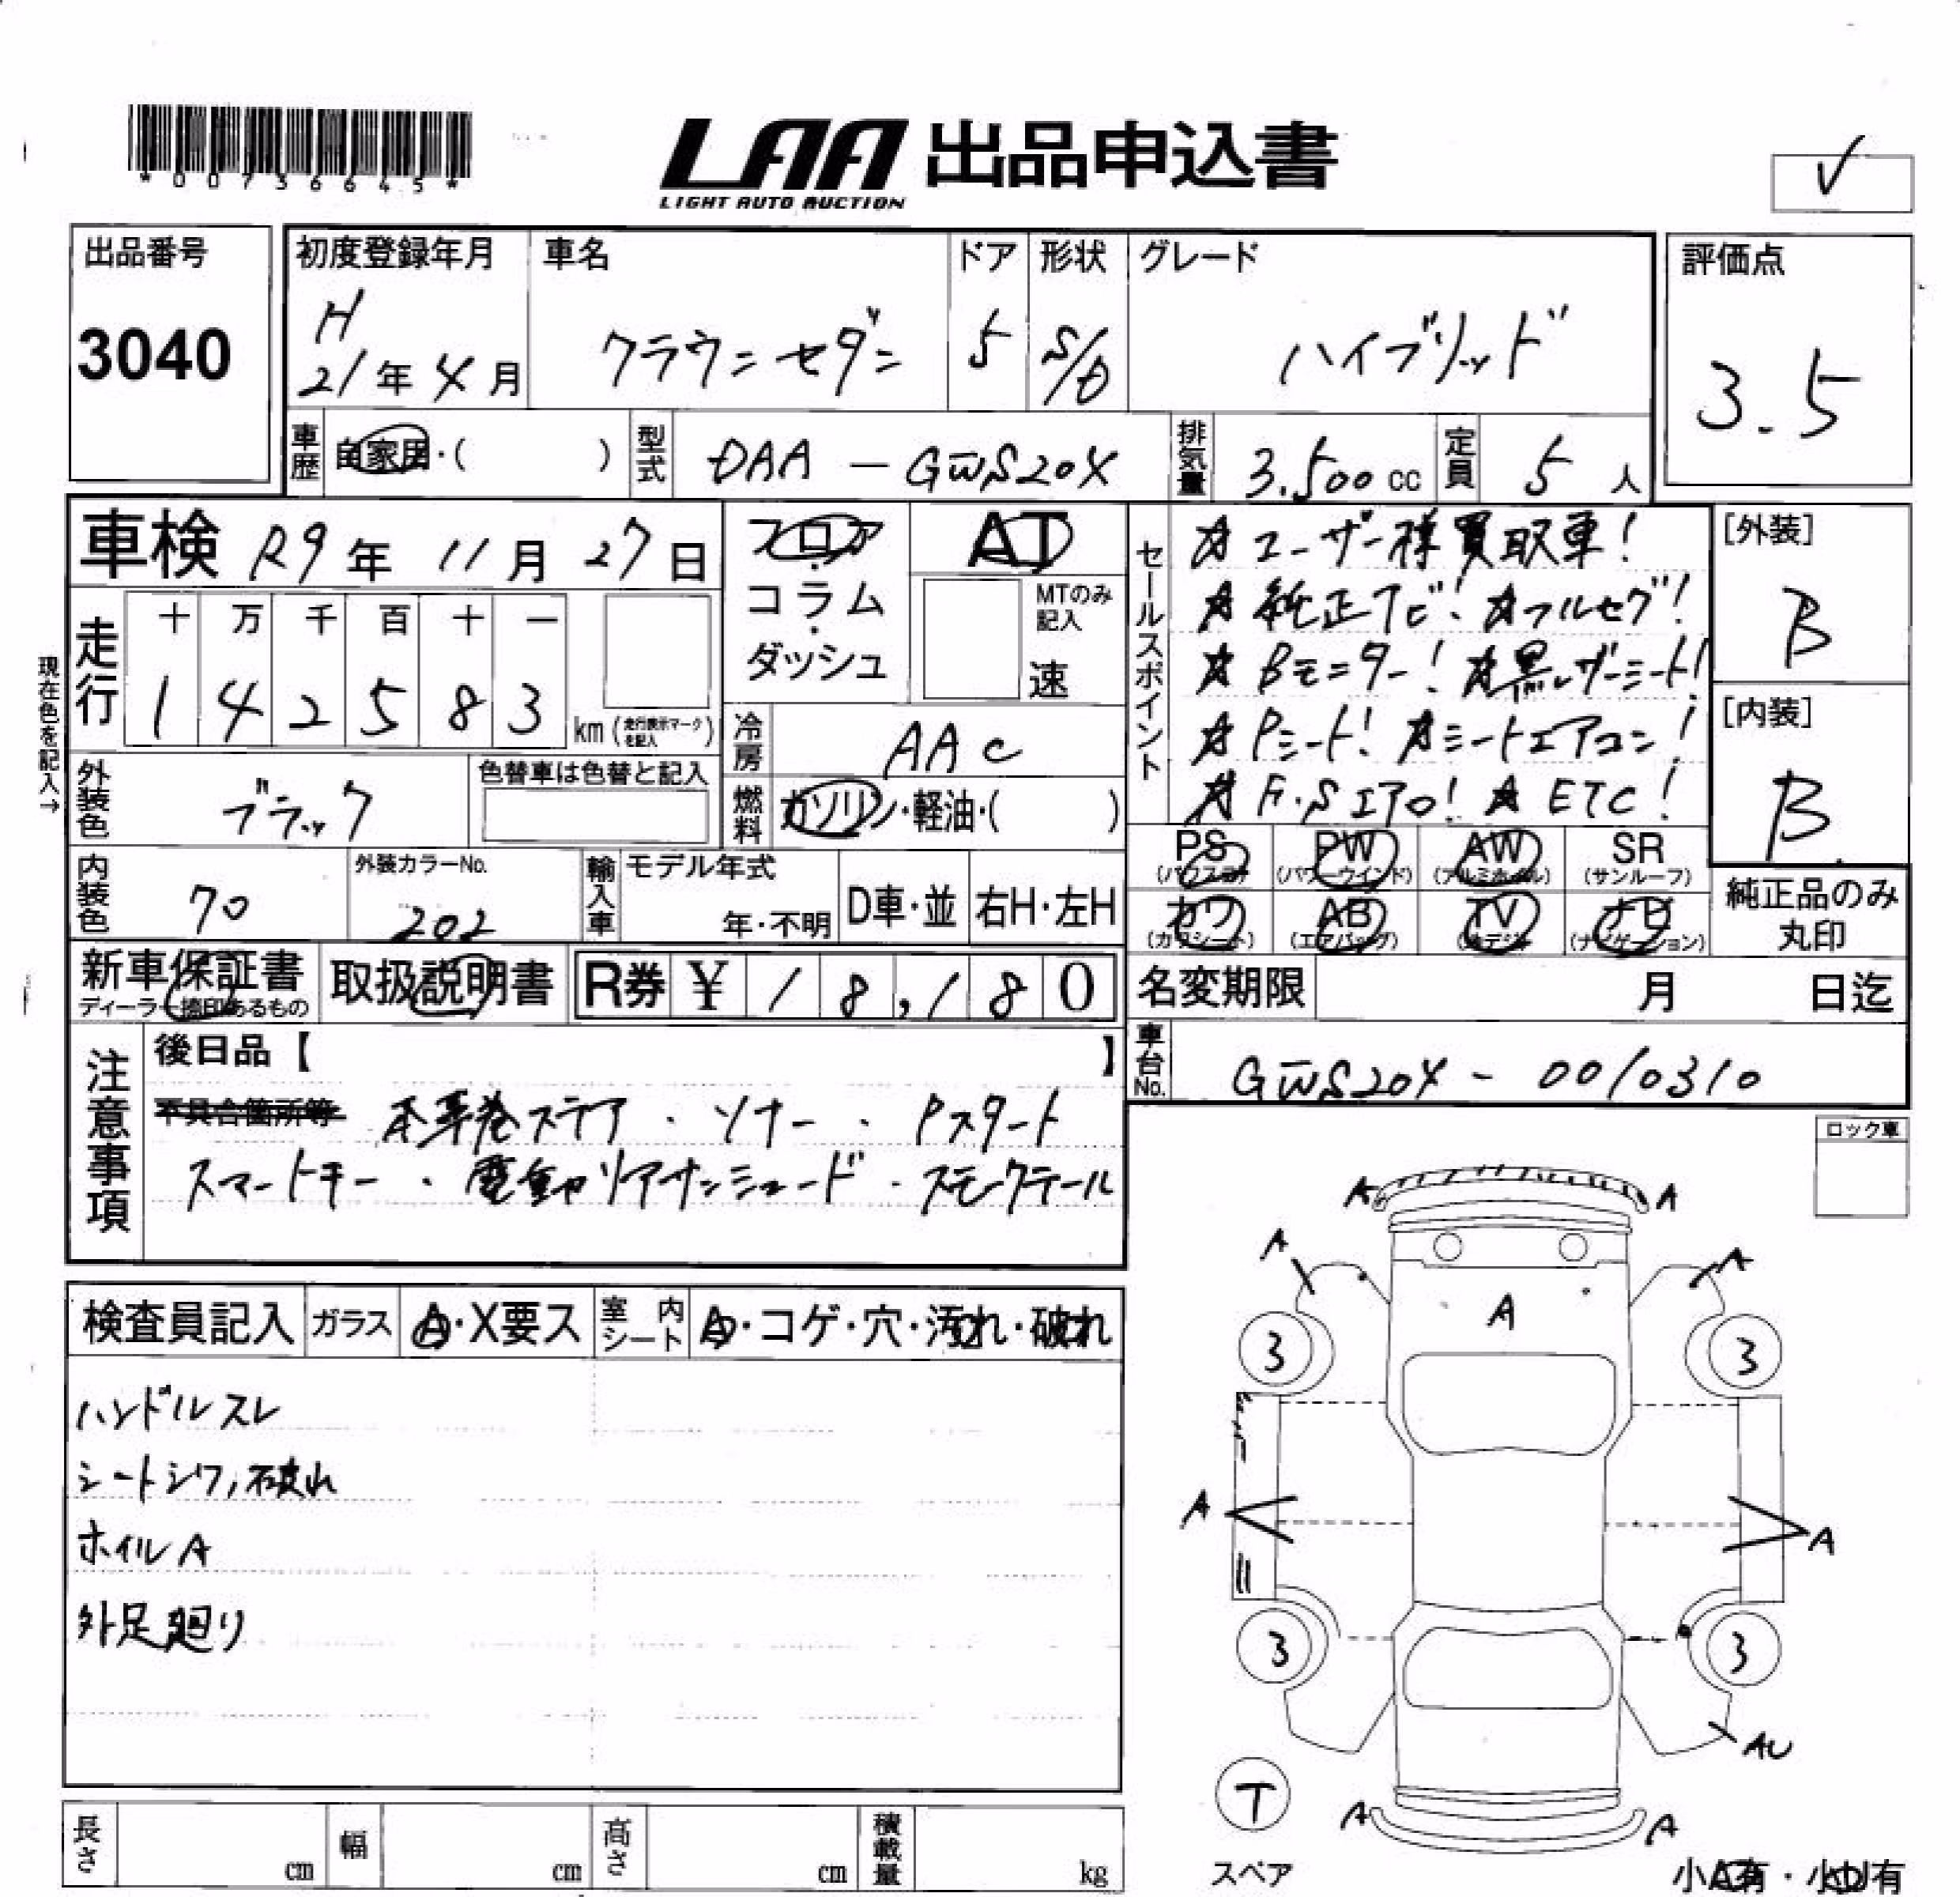 *00736645*
LAA 出品申込書
LIGHT AUTO AUCTION
✓
出品番号
3040
初度登録年月
H
21年 4月
車名
クラウンセダン
ドア
5
形状
S/D
グレード
ハイブリッド
評価点
3.5
車歴
自家用・( )
型式
DAA-GWS204
排気量
3.500cc
定員
5人
車検 R9年 11月 27日
フロア
・
コラム
・
ダッシュ
AT
MTのみ
記入
速
セールスポイント
★ユーザー様買取車!
★純正ナビ! ★フルセグ!
★Bモニター! ★黒レザーシート!
★Pシート! ★シートエアコン!
★F.Sエアロ! ★ETC!
[外装]
B
[内装]
B
現在色を記入→
走行
十 万 千 百 十 一
1 4 2 5 8 3
km(走行表示マークを記入)
冷房
AAC
外装色
ブラック
色替車は色替と記入
燃料
ガソリン・軽油・( )
PS
(パワステ)
PW
(パワーウインド)
AW
(アルミホイル)
SR
(サンルーフ)
カワ
(カワシート)
AB
(エアバッグ)
TV
ナビ
(ナビゲーション)
純正品のみ
丸印
内装色
70
外装カラーNo.
202
輸入車
モデル年式
年・不明
D車・並
右H・左H
新車保証書
ディーラー捺印あるもの
取扱説明書
R券 ¥ 18,180
名変期限 月 日迄
車台No.
GWS204-0010310
注意事項
後日品【 】
不具合箇所等 本革巻ステア・ソナー・Pスタート
スマートキー・電動リアサンシェード・スモークテール
ロック車
検査員記入
ガラス
A・X要ス
室内シート
A・コゲ・穴・汚れ・破れ
ハンドルスレ
シートシワ,破れ
ホイルA
外足廻り
A A
A A
A
3 3
A A
3 3
AU
T
A A
スペア
小A有・小U有
長さ cm
幅 cm
高さ cm
積載量 kg